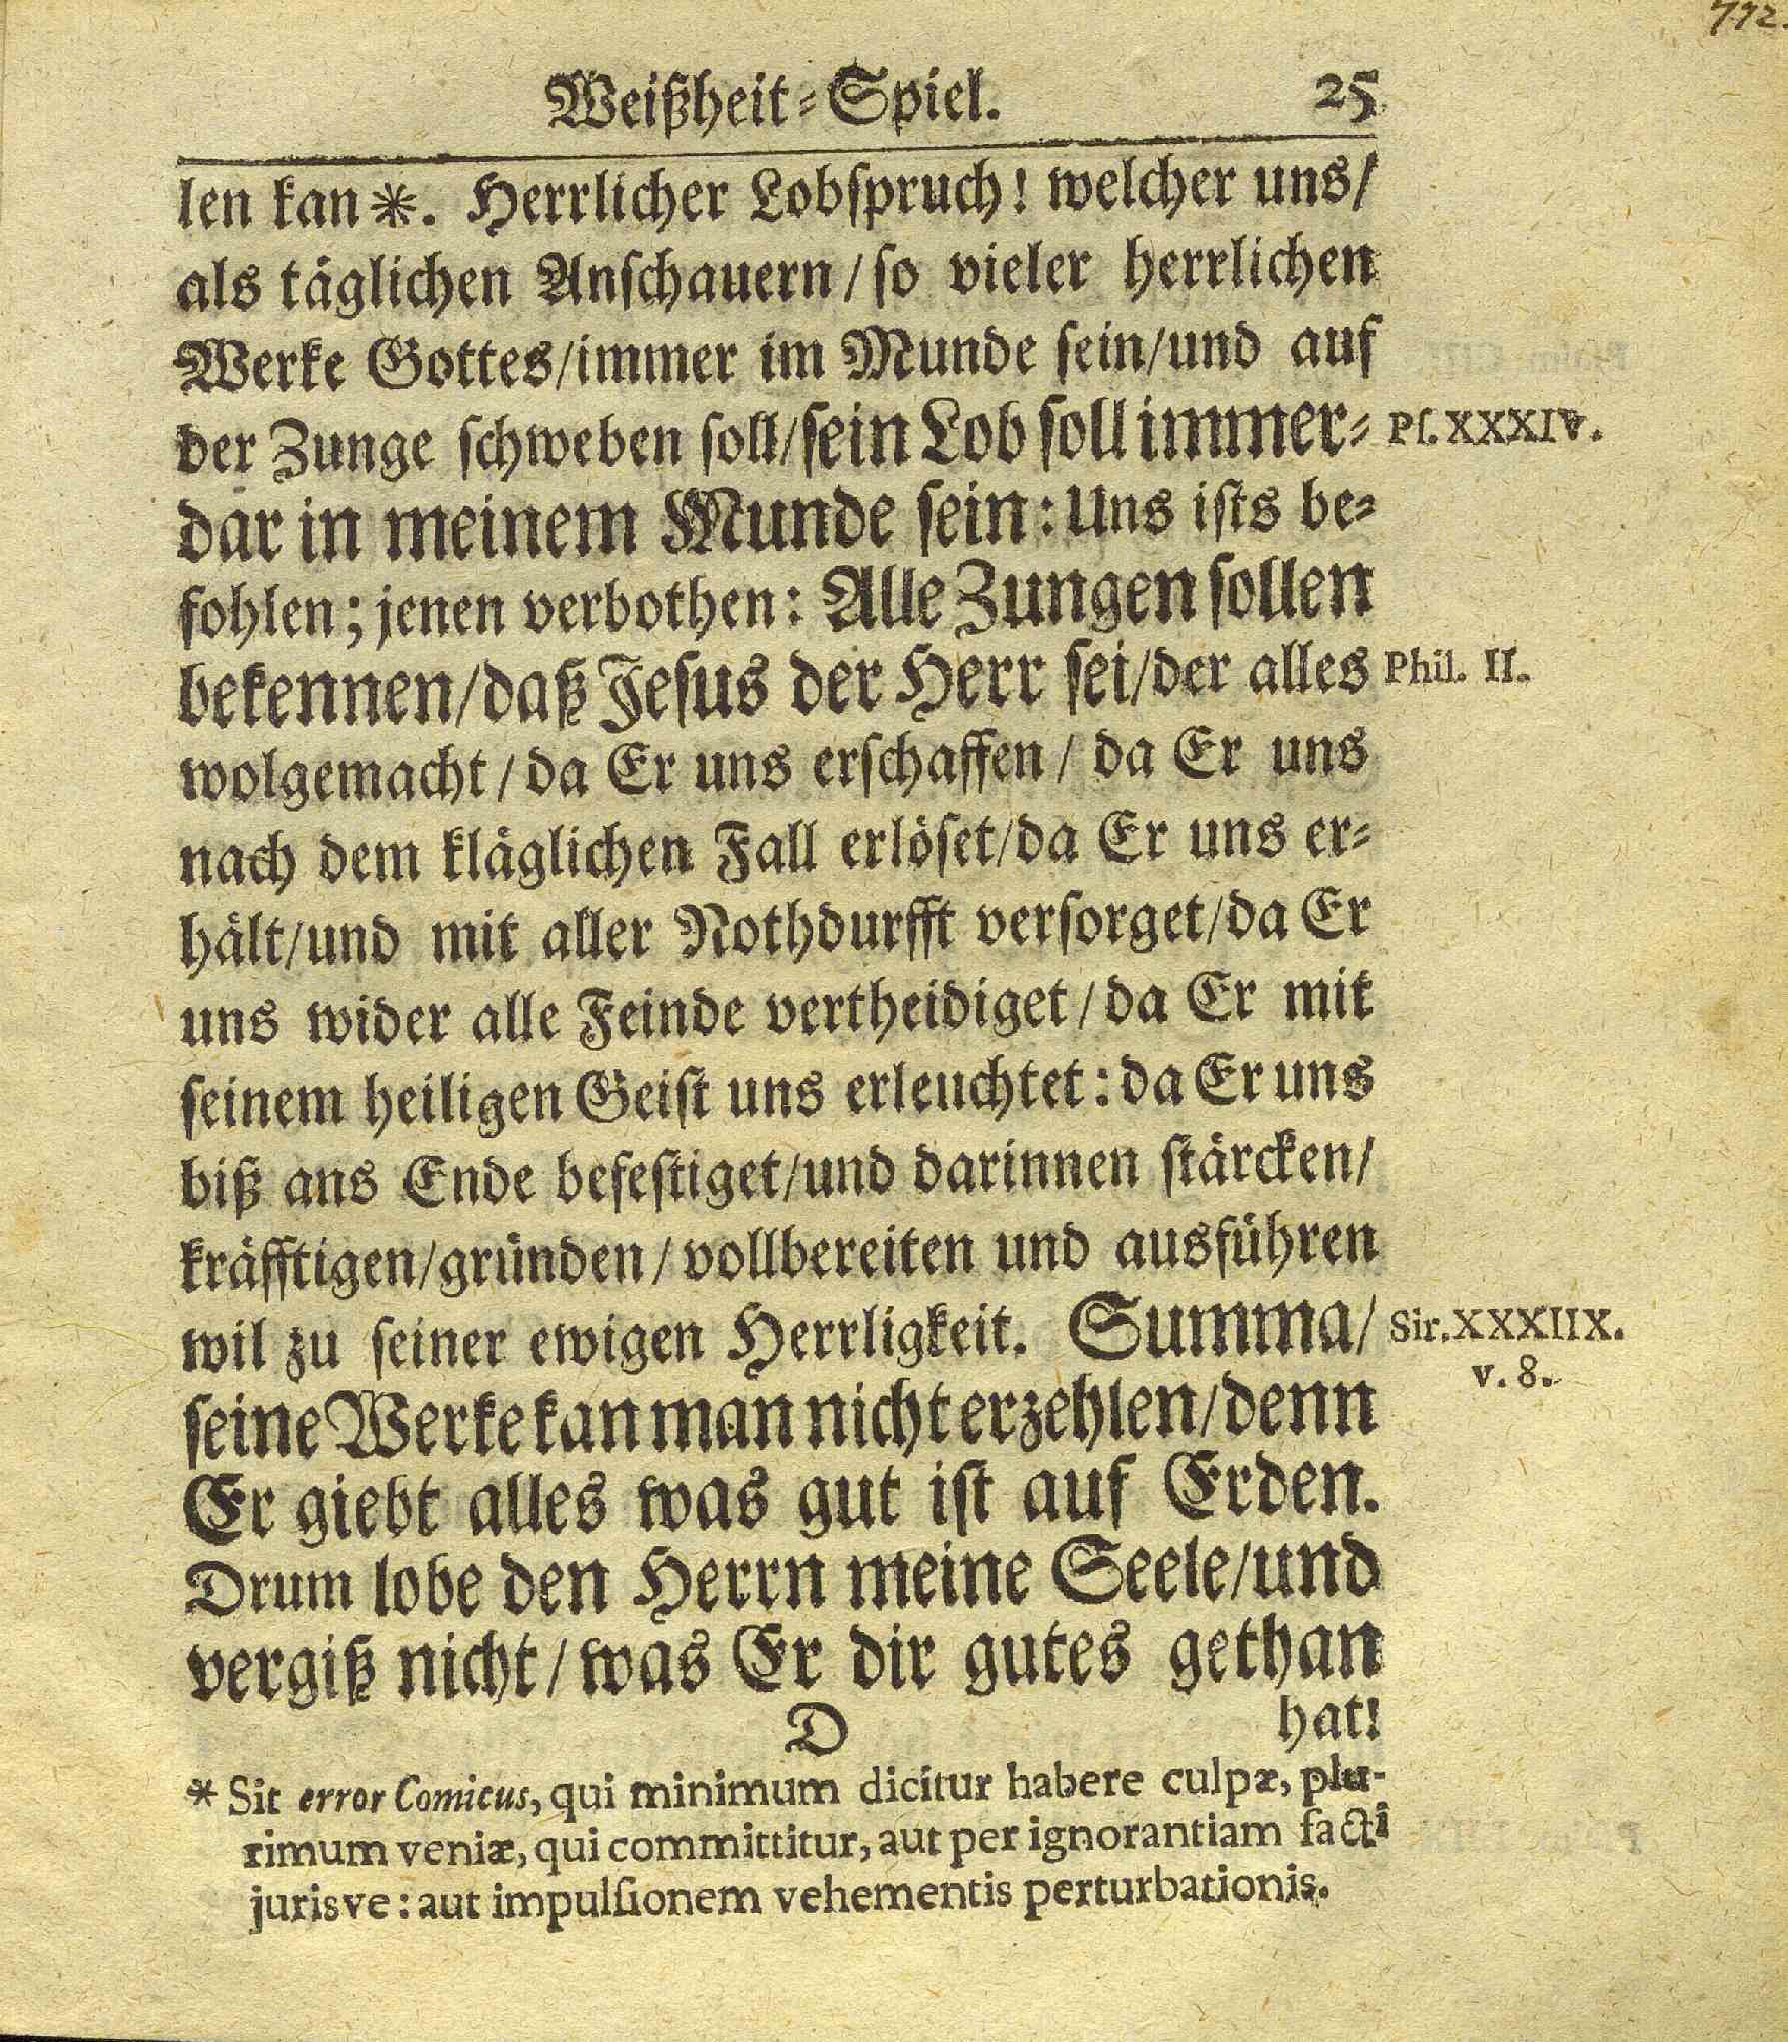 792.
Weißheit-Spiel. 25
len kan *. Herrlicher Lobspruch! welcher uns/
als täglichen Anschauern/ so vieler herrlichen
Werke Gottes/immer im Munde sein/und auf
der Zunge schweben soll/sein Lob soll immer- Ps. XXXIV.
dar in meinem Munde sein: Uns ists be-
fohlen; jenen verbothen: Alle Zungen sollen
bekennen/daß Jesus der Herr sei/der alles Phil. II.
wolgemacht/ da Er uns erschaffen/ da Er uns
nach dem kläglichen Fall erlöset/da Er uns er-
hält/und mit aller Nothdurfft versorget/da Er
uns wider alle Feinde vertheidiget/da Er mit
seinem heiligen Geist uns erleuchtet: da Er uns
biß ans Ende befestiget/und darinnen stärcken/
kräfftigen/gründen/vollbereiten und ausführen
wil zu seiner ewigen Herrligkeit. Summa/ Sir. XXXIIX.
v. 8.
seine Werke kan man nicht erzehlen/denn
Er giebt alles was gut ist auf Erden.
Drum lobe den Herrn meine Seele/und
vergiß nicht/ was Er dir gutes gethan
D hat!
* Sit error Comicus, qui minimum dicitur habere culpæ, plu-
rimum veniæ, qui committitur, aut per ignorantiam facti
jurisve: aut impulsionem vehementis perturbationis.